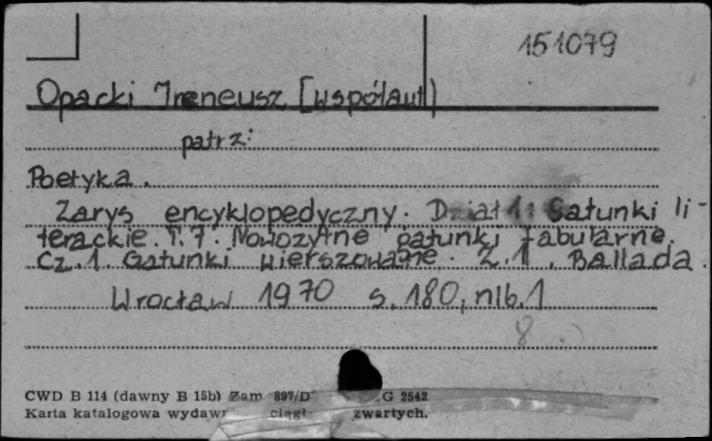 151079
Opacki Ireneusz [współaut]
patrz:
Poetyka.
Zarys encyklopedyczny. Dział 1: Gatunki li-
terackie. T. 7. Nowożytne gatunki fabularne.
Cz. 1. Gatunki wierszowane. Z. 1. Ballada.
Wrocław 1970 s. 180, nlb. 1
8
CWD B 114 (dawny B 15b) Zam 897/D G 2542
Karta katalogowa wydaw ciągł zwartych.